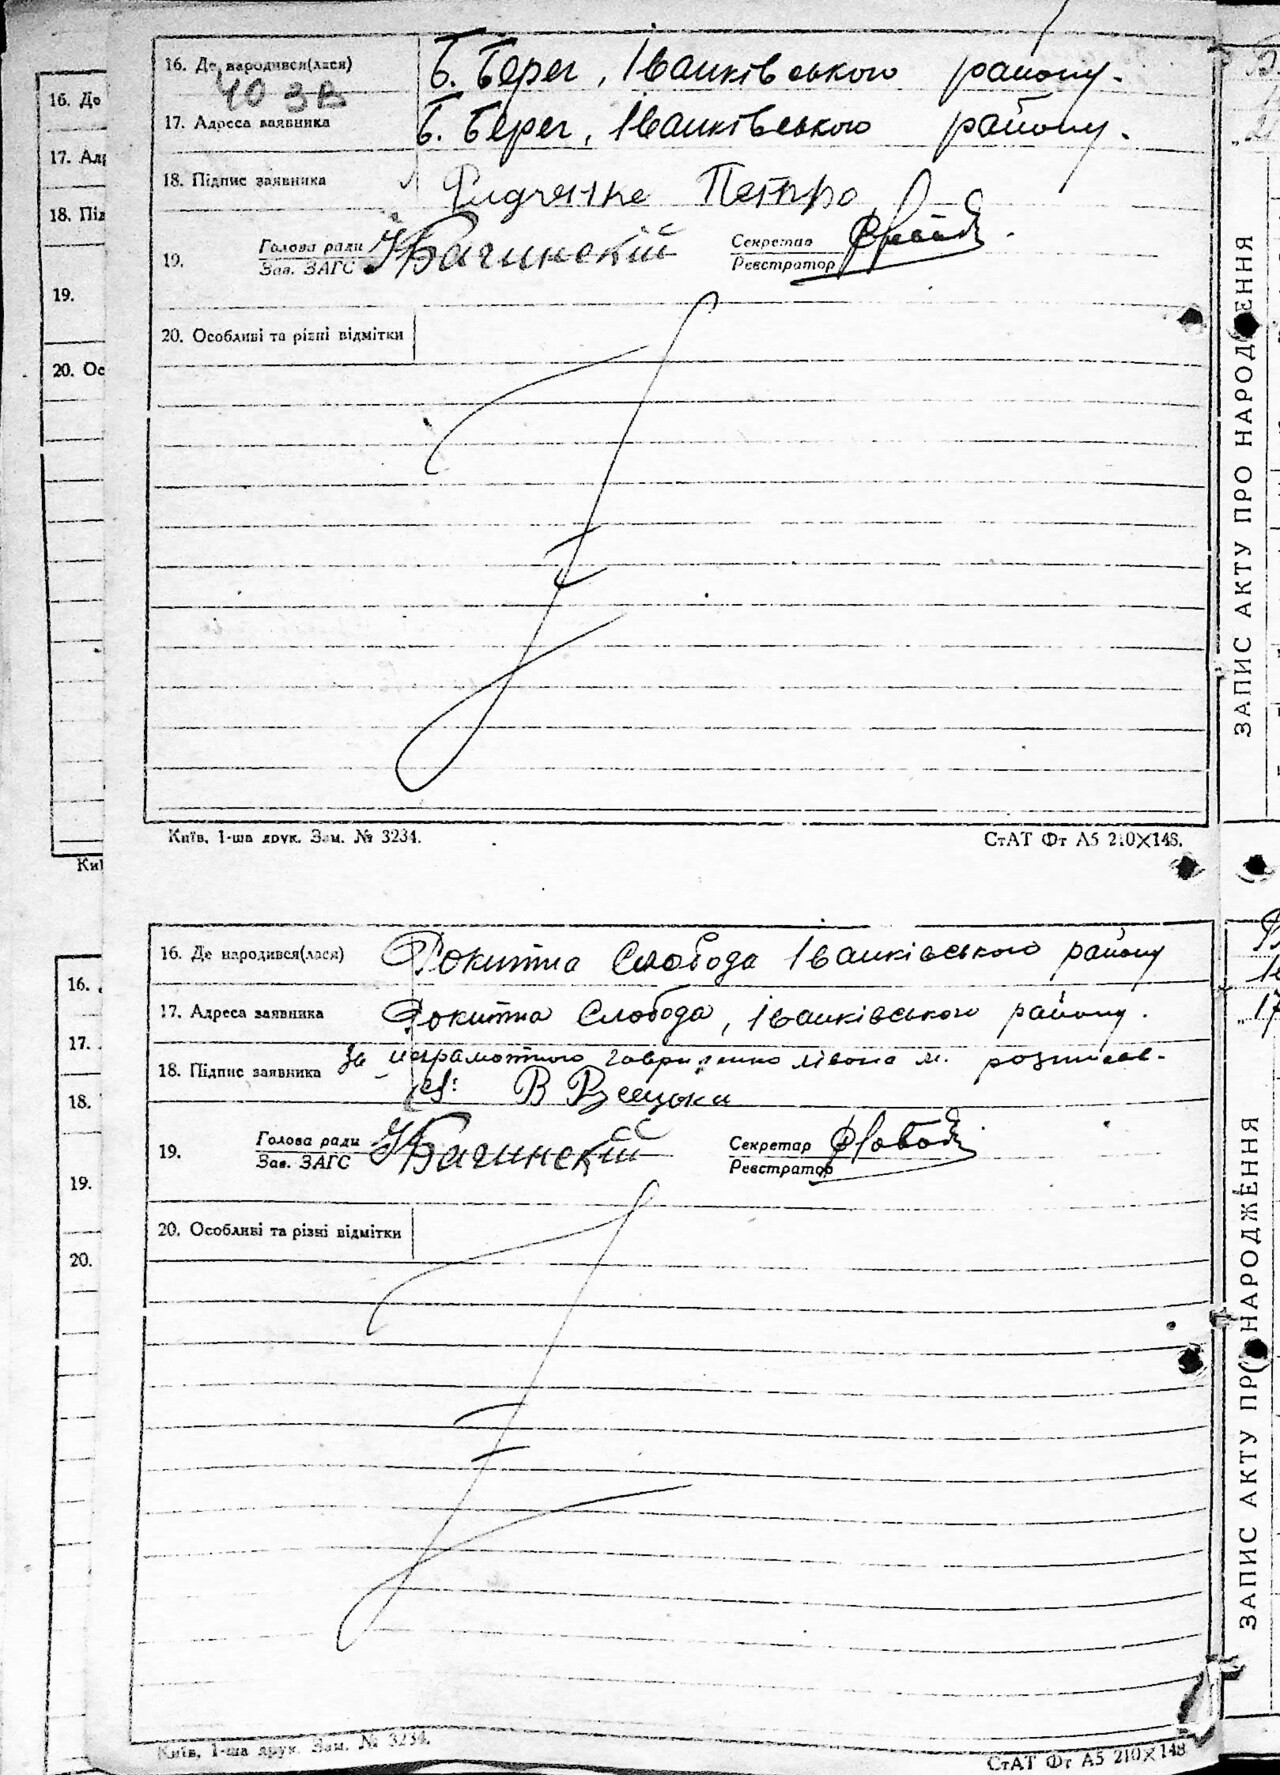 16. Де народився(лася) Б. Берег, Іванківського району.
40 зв
17. Адреса заявника Б. Берег, Іванківського району.
18. Підпис заявника Петро
19. Голова ради Зав. ЗАГС КБачинский Секретар Реєстратор
20. Особливі та різні відмітки
Київ, 1-ша друк. Зам. № 3234. СтАТ Фт А5 210×148.
16. Де народився(лася) Рокитна Слобода Іванківського району
17. Адреса заявника Рокитна Слобода, Іванківського району.
18. Підпис заявника За неграмотного Гавриленко розписав-
ся: В
19. Голова ради Зав. ЗАГС КБачинский Секретар Реєстратор
20. Особливі та різні відмітки
Київ, 1-ша друк. Зам. № 3234. СтАТ Фт А5 210×148
16. До
17. Ад
18. Під
19.
20. Ос
Ки
16.
17.
18.
19.
20.
ЗАПИС АКТУ ПРО НАРОДЖЕННЯ
ЗАПИС АКТУ ПРО НАРОДЖЕННЯ